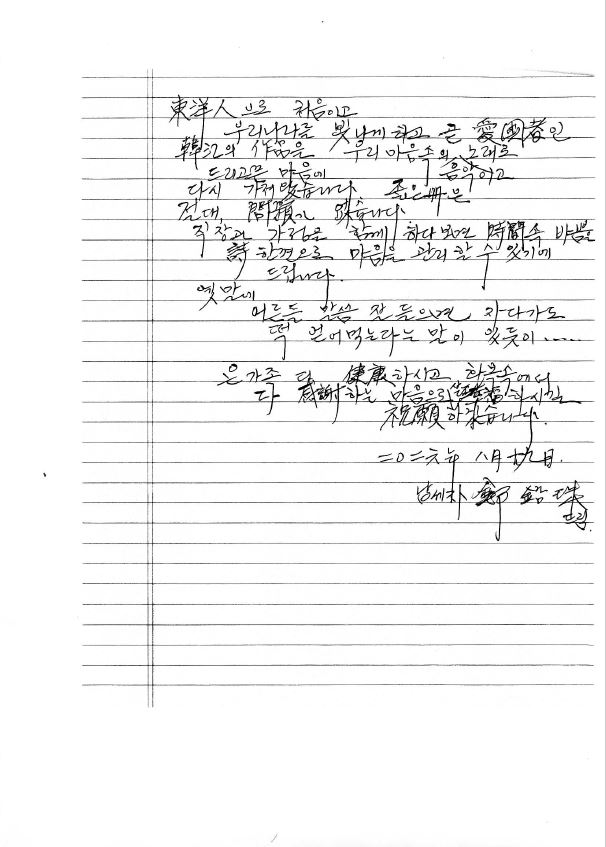 東洋人으로 처음이고
우리나라를 빛나게 하고 큰 愛國者인
韓江의 作品은 우리 마음속의 노래로
드리고픈 마음에 음악이고
다시 가져왔습니다. 좋은冊은
절대, 問題가 없습니다.
직장과 가정을 함께 하다보면 時間속 바쁨을
詩 한편으로 마음을 관리할 수 있기에
드립니다.
옛말에
어른들 말씀 잘 들으면 자다가도
떡 얻어먹는다는 말이 있듯이 ......
온가족 다 健康하시고 행복속에서
다 感謝하는 마음으로 하시길
祝願하겠습니다.
二〇二六年 八月 九日.
鄭 珠
드림.